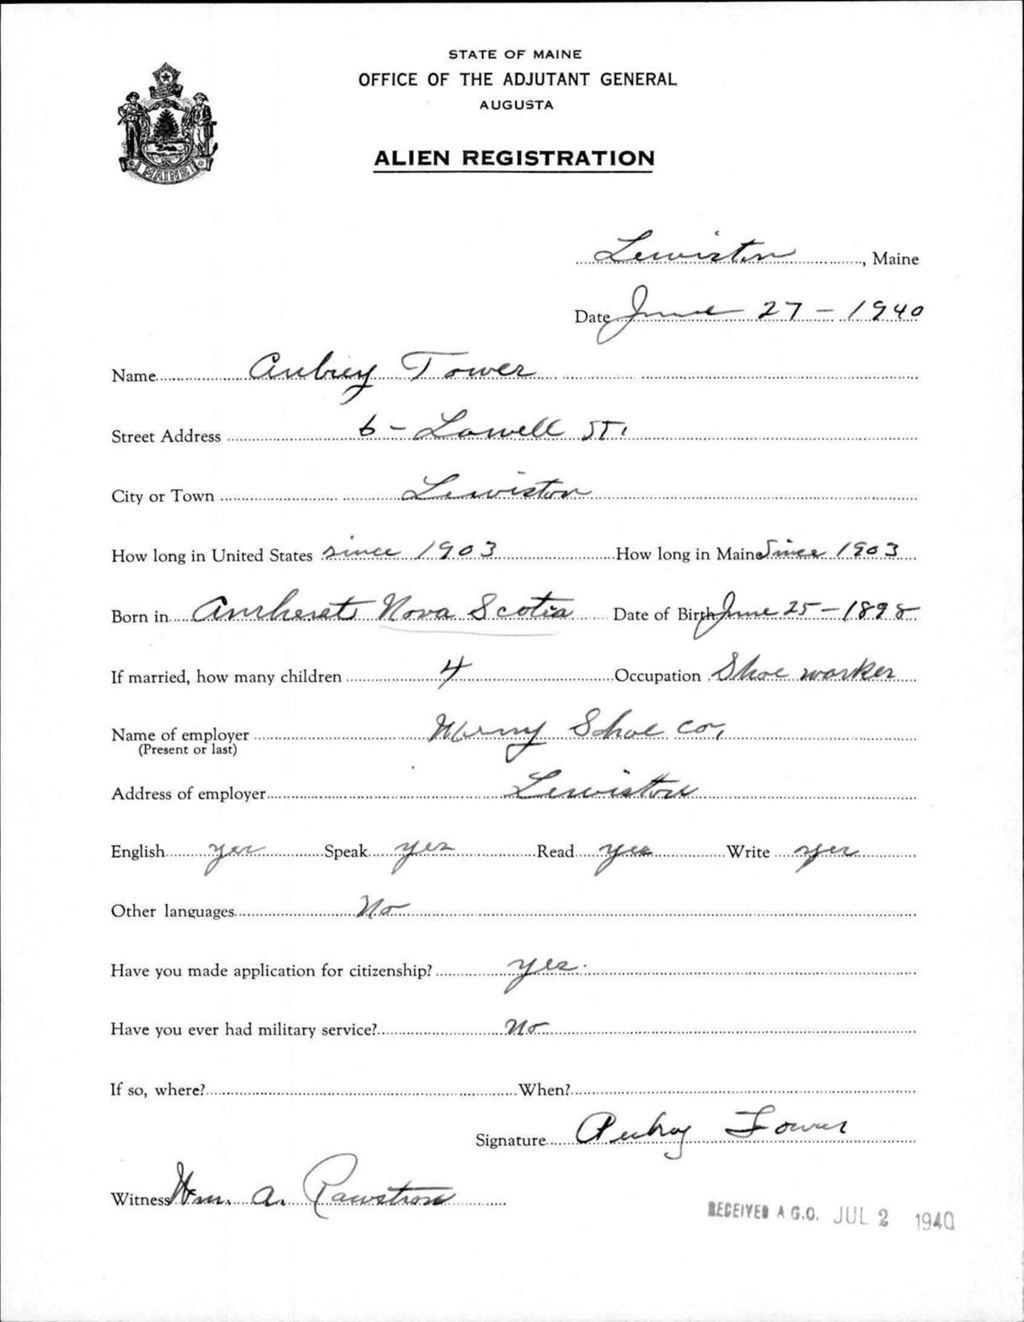 STATE OF MAINE
OFFICE OF THE ADJUTANT GENERAL
AUGUSTA
ALIEN REGISTRATION
MAINE
Lewiston, Maine
Date June 27 - 1940
Name Aubrey Tower
Street Address 6 - Lowell St.
City or Town Lewiston
How long in United States since 1903 How long in Maine Since 1903
Born in Amherst Nova Scotia Date of Birth June 25 - 1898
If married, how many children 4 Occupation Shoe worker
Name of employer Shoe Co,
(Present or last)
Address of employer Lewiston
English yes Speak yes Read yes Write yes
Other languages No
Have you made application for citizenship? yes.
Have you ever had military service? No
If so, where? When?
Signature Aubrey Tower
Witness Wm. A. Rawstron
RECEIVED A.G.O. JUL 2 1940